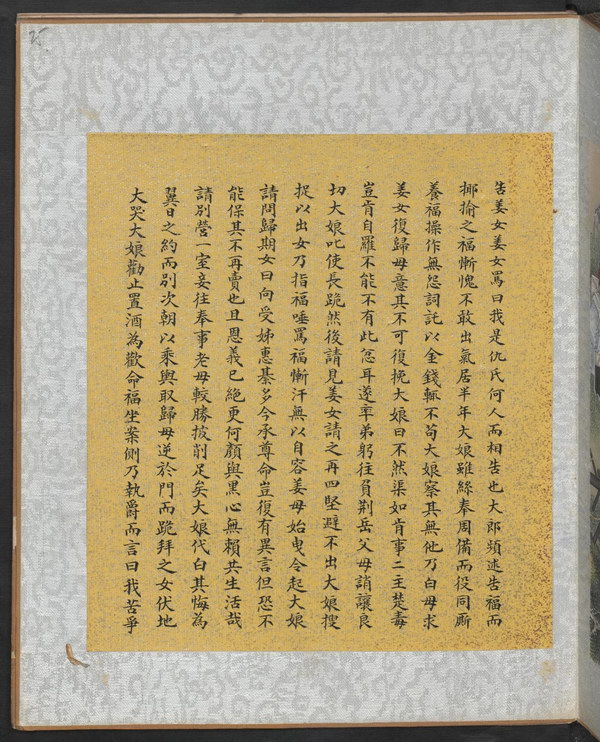 25
告姜女姜女罵曰我是仇氏何人而相告也大郎頻述告福而
揶揄之福慚愧不敢出氣居半年大娘雖給奉周備而役同厮
養福操作無怨詞託以金錢輒不苟大娘察其無他乃白母求
姜女復歸母意其不可復挽大娘曰不然渠如肯事二主楚毒
豈肯自罹不能不有此忿耳遂率弟躬往負荊岳父母誚讓良
切大娘叱使長跪然後請見姜女請之再四堅避不出大娘搜
捉以出女乃指福唾罵福慚汗無以自容姜母始曳令起大娘
請問歸期女曰向受姊惠綦多今承尊命豈復有異言但恐不
能保其不再賣也且恩義已絕更何顏與黑心無賴共生活哉
請別營一室妾往奉事老母較勝披削足矣大娘代白其悔為
翼日之約而別次朝以乘輿取歸母逆於門而跪拜之女伏地
大哭大娘勸止置酒為歡命福坐案側乃執爵而言曰我苦爭